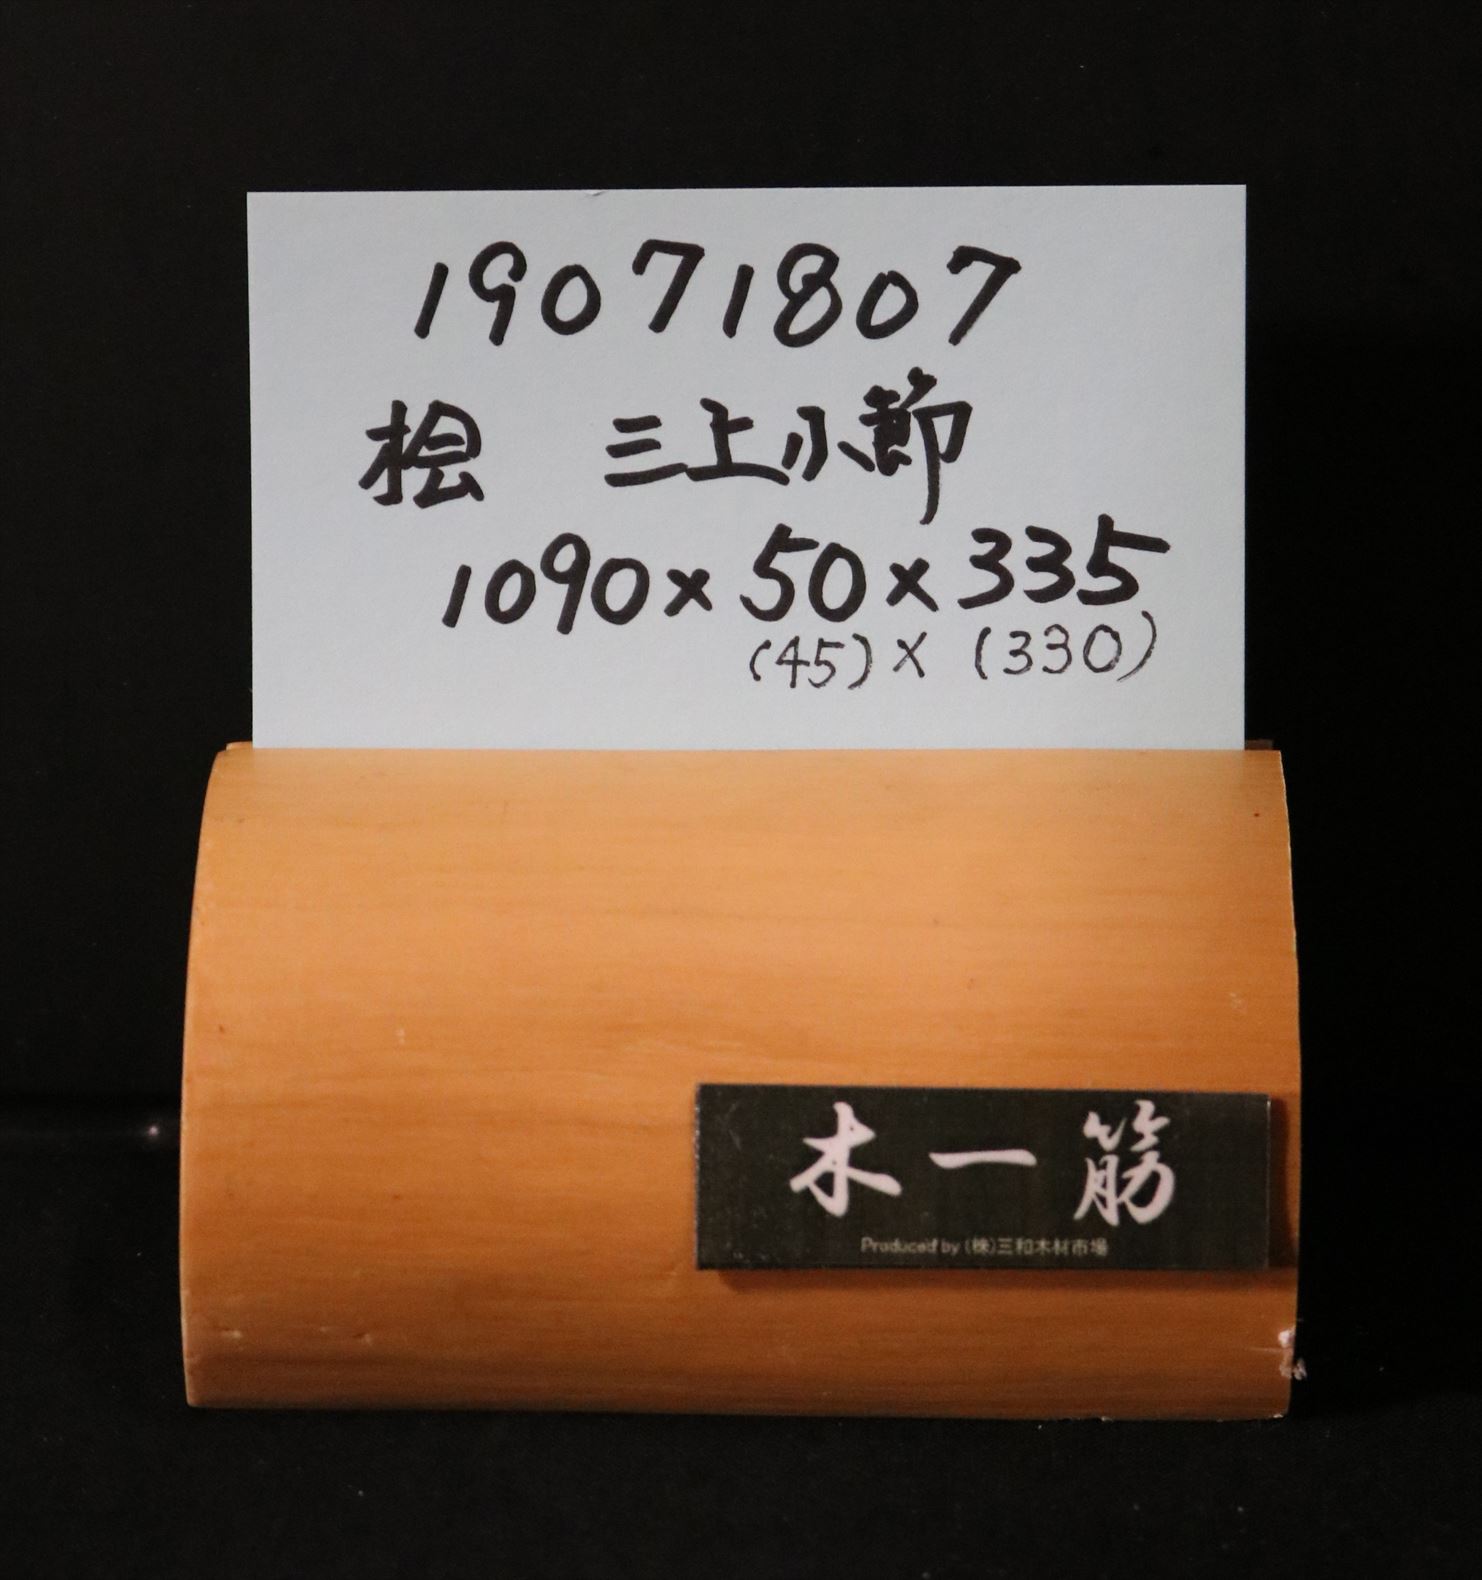 19071807
桧 三上小節
1090×50×335
(45)×(330)
木一筋
Produced by (株)三和木材市場